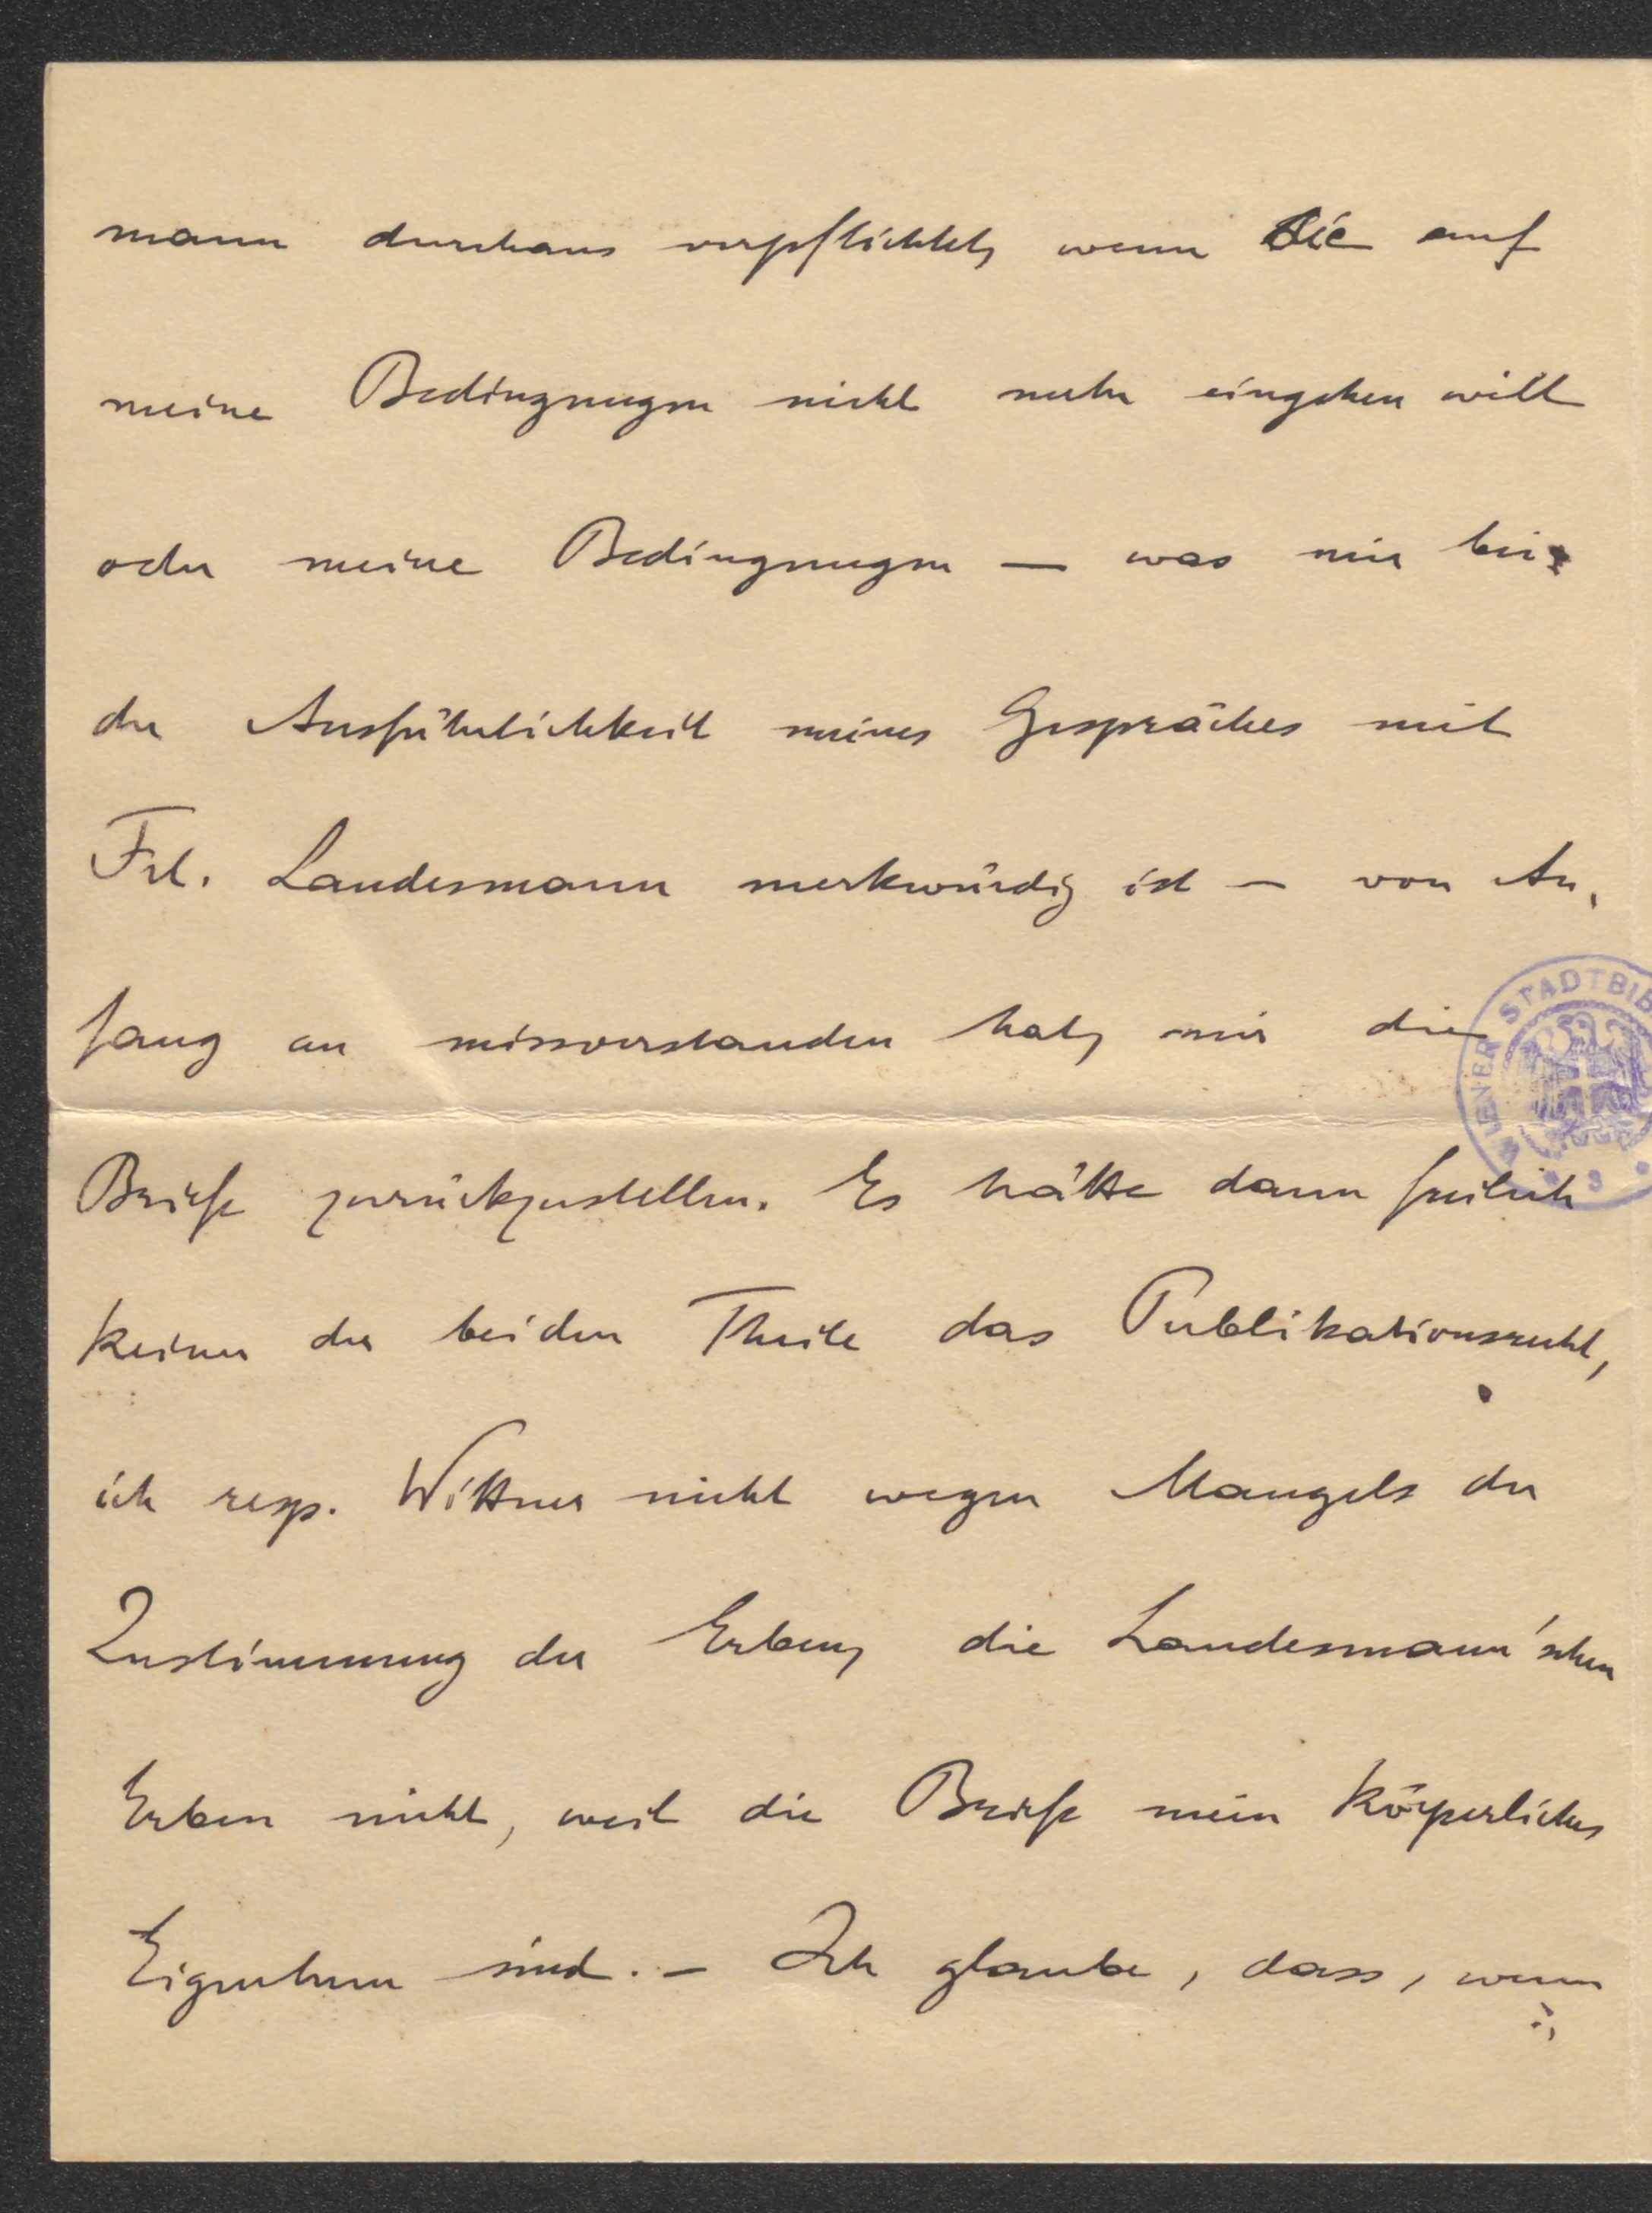 mann durchaus verpflichtet, wenn Sie auf
meine Bedingungen nicht mehr eingehen will
oder meine Bedingungen — was mir bei
der Ausführlichkeit meines Gespräches mit
Frl. Landesmann merkwürdig ist — von An,
fang an missverstanden hat, mir die
WIENER STADTBIB
Briefe zurückzustellen. Es hätte dann freilich
keiner der beiden Theile das Publikationsrecht,
ich resp. Wittner nicht wegen Mangels der
Zustimmung der Erben, die Landesmann'schen
Erben nicht, weil die Briefe mein körperliches
Eigenthum sind. – Ich glaube, dass, wenn